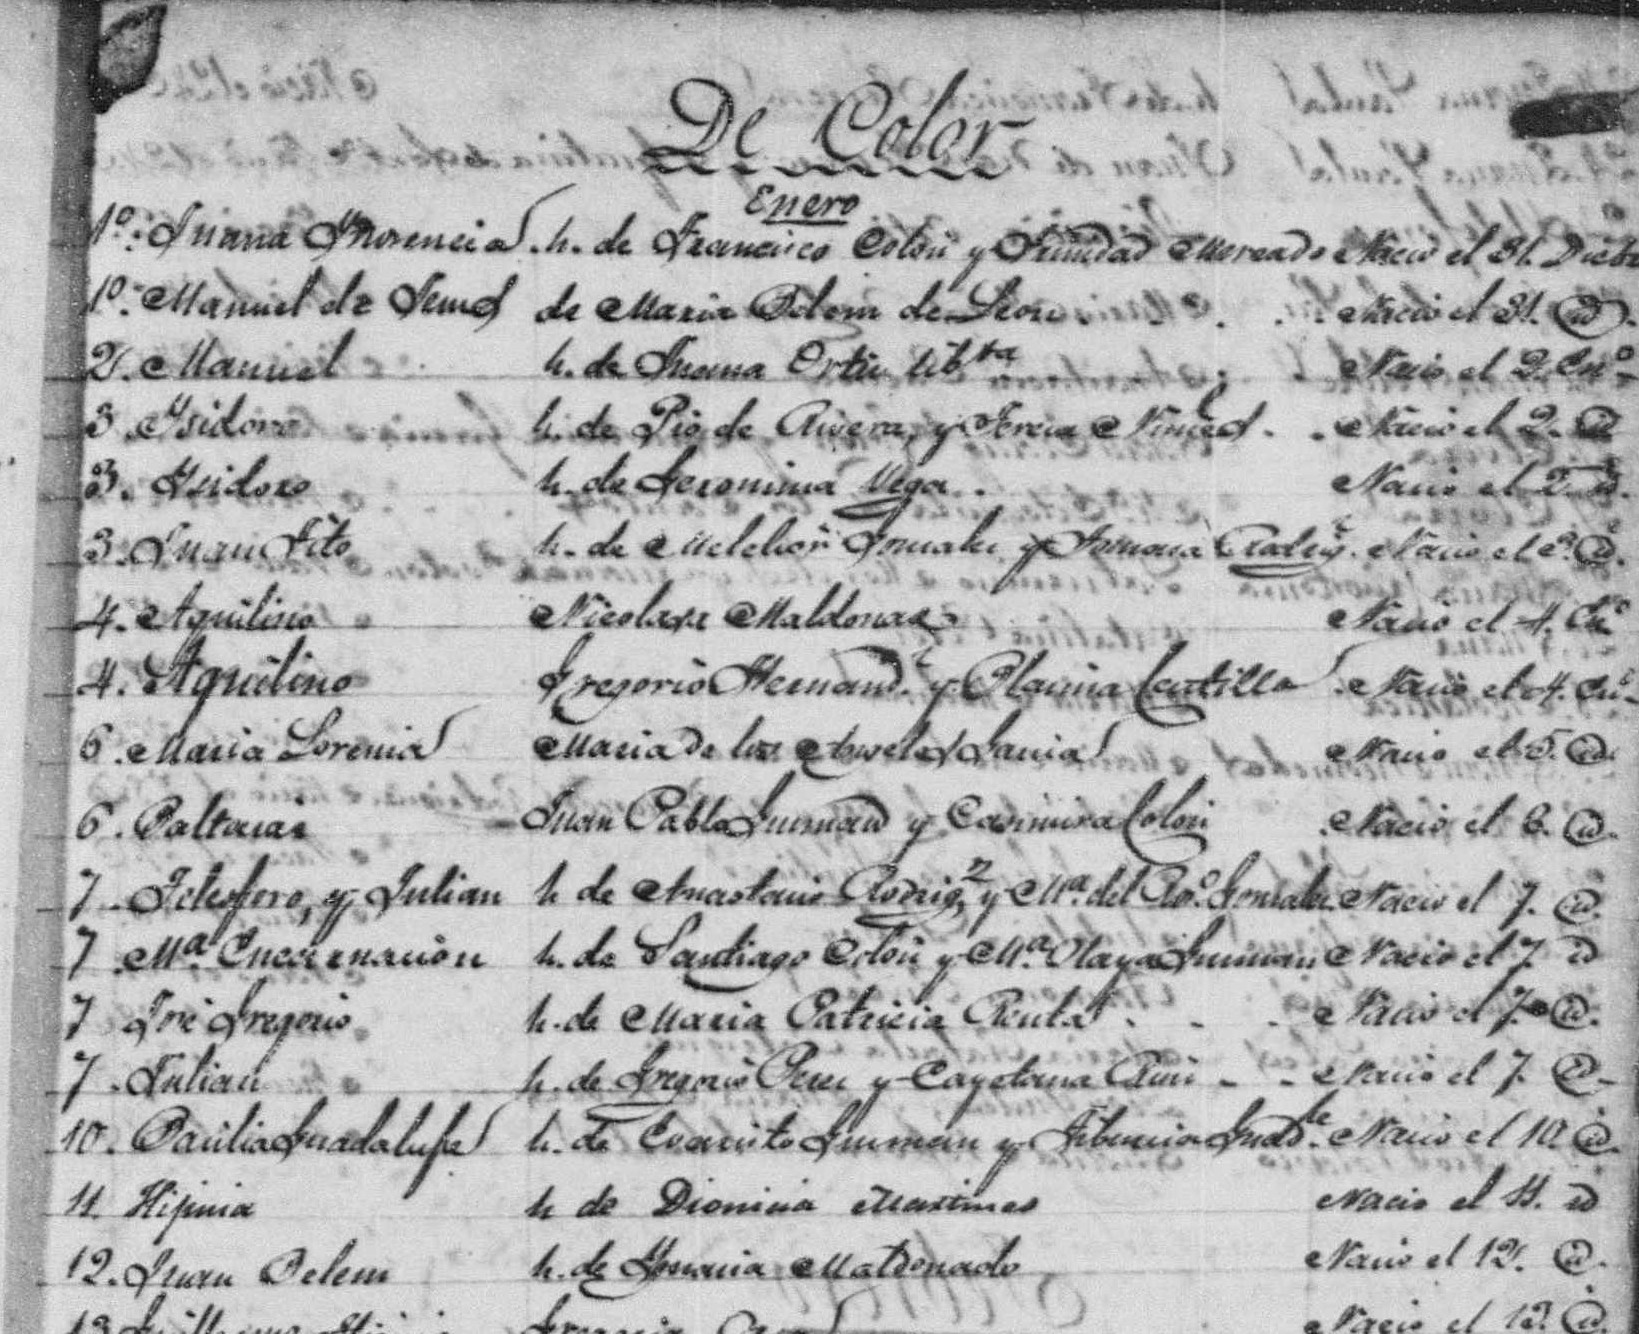 De Color
Enero
1º. Juana h. de Francisco Colón y Trinidad Mercado Nacio el 31. Dicbr
1º. Manuel de Jesus de Maria Belem de Leon Nacio el 31. id.
2. Manuel h. de Juana Ortiz Nacio el 2. Enº
3. Isidoro h. de Pio de Rivera, y Nacio el 2. id
3. Isidoro h. de Geronima Vega. Nacio el 2. id.
3. Juan Tito h. de Melchor Gonzalez y Rodrig. Nacio el 2. id.
4. Aquilino Nicolasa Maldonado Nacio el 4. Enº
4. Aquilino Gregorio Hernand.z y Castillo Nacio el 4. Enº
6. Maria Lorenza Maria de los Angeles Nacio el 5. id.
6. Baltasar Juan Pablo Guzman y Casimira Colon Nacio el 6. id.
7. Telesforo, y Julian h de Anastacio Rodrigz, y Mª. del Rosº. Gonzalez Nacio el 7. id.
7 Mª. Encarnación h. de Santiago Colón y Mª. Olaya Guzman Nacio el 7. id
7 José Gregorio h. de Maria Patricia Renta Nacio el 7. id.
7. Julian h. de Gregorio Perez y Cayetana Ruiz Nacio el 7. id.
10. Guadalupe h. de Evaristo Guzman y Nacio el 10. id.
11. Hijinia h de Dionicia Martines Nacio el 11. id
12. Juan Belem h. de Ignacia Maldonado Nacio el 12. id.
13 Nacio el 12. id.